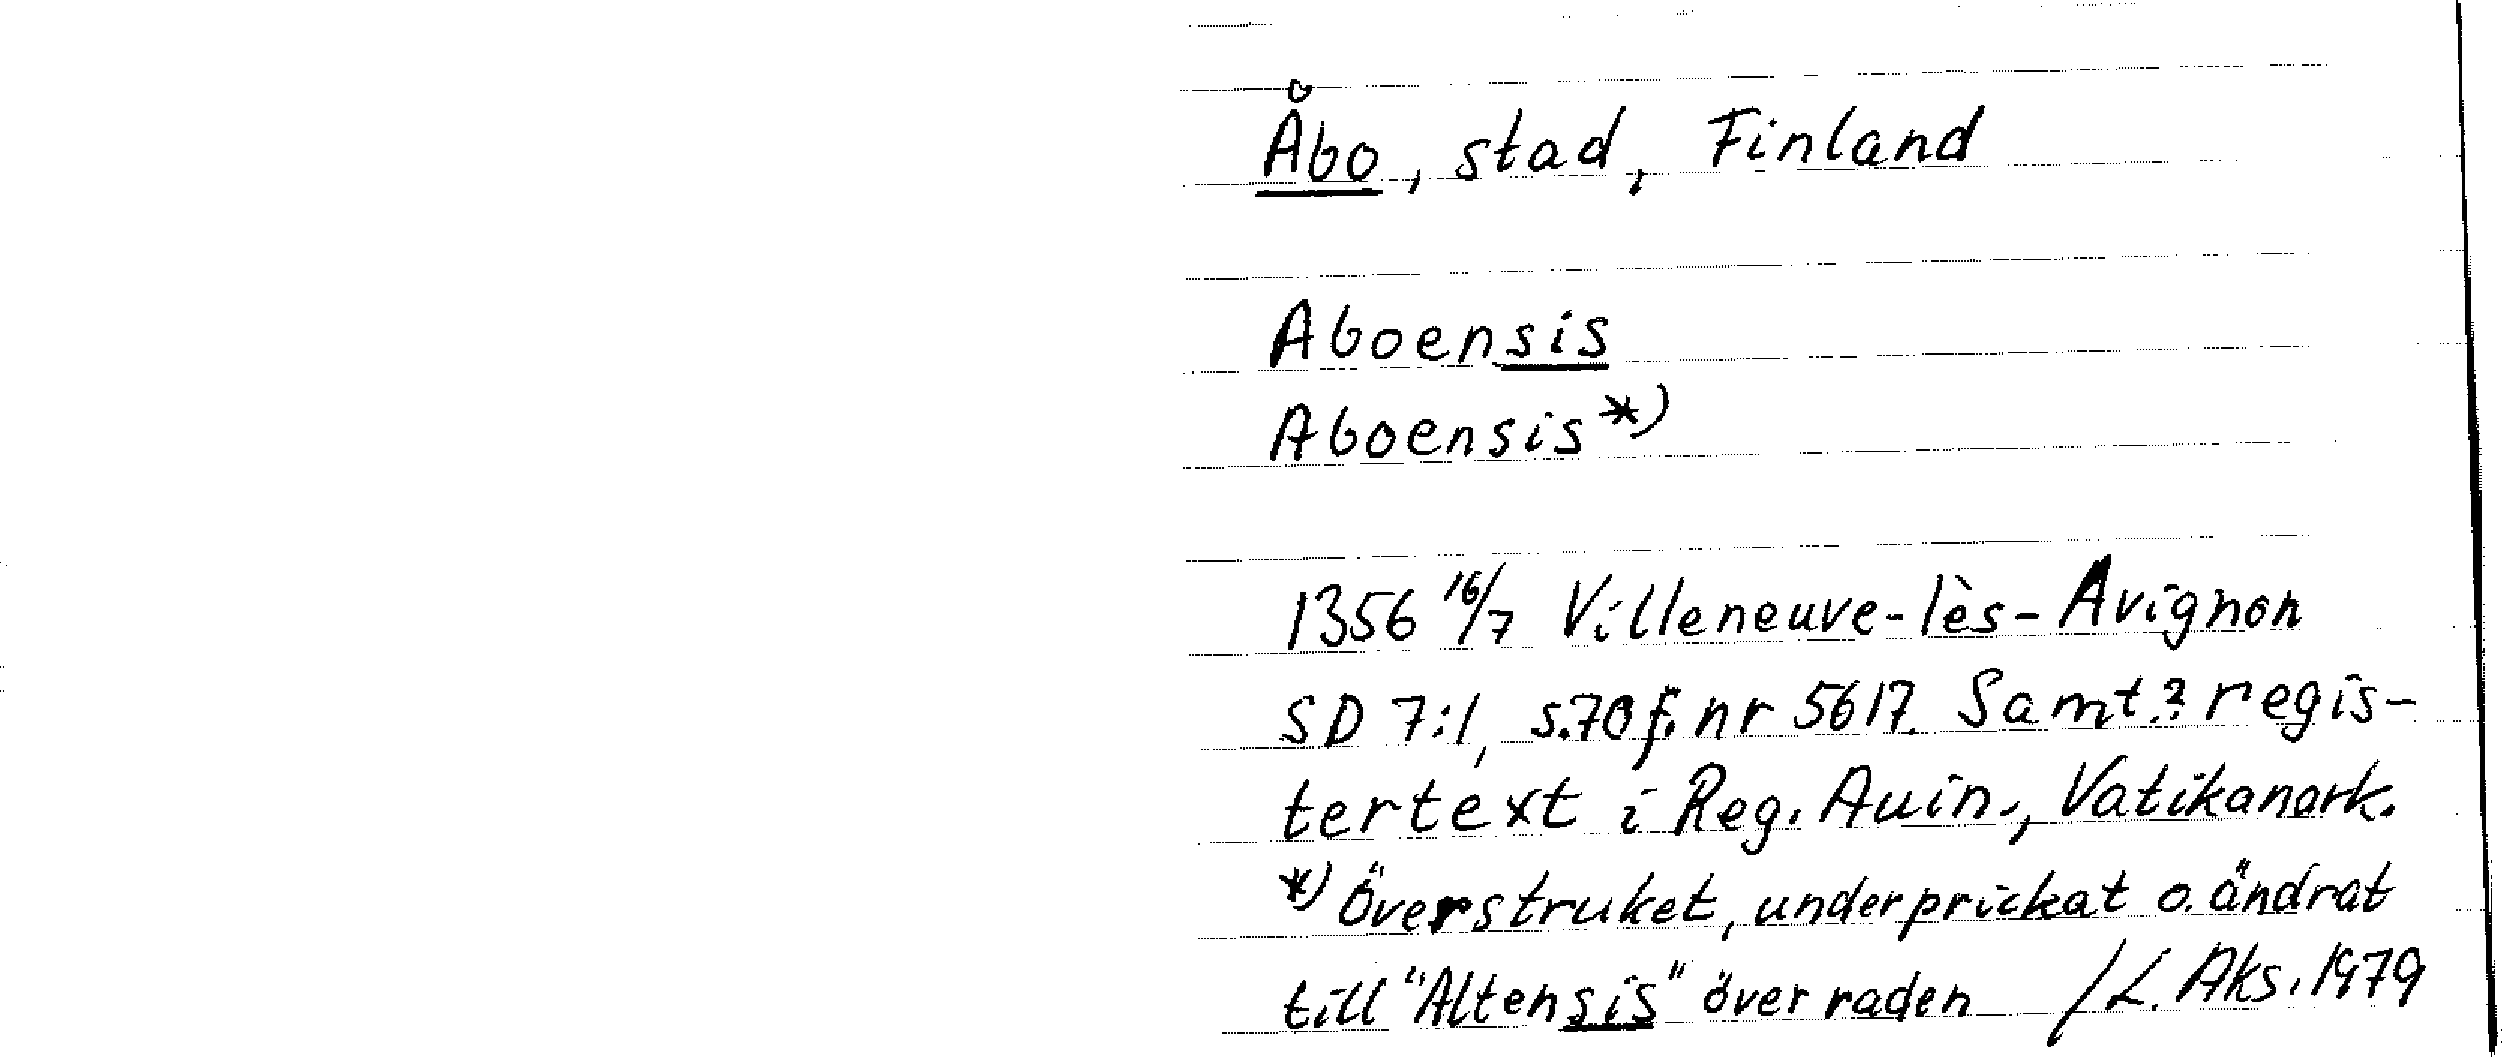 Åbo, stad, Finland
Aboensis
Aboensis *)
1356 16/7 Villeneuve-lès-Avignon
SD 7:1, s.70 f. nr 5617. Samt.? regis-
tertext i Reg. Auin., Vatikanark.
*) Överstruket, underprickat o. ändrat
till "Altensis" över raden /L. Aks. 1979